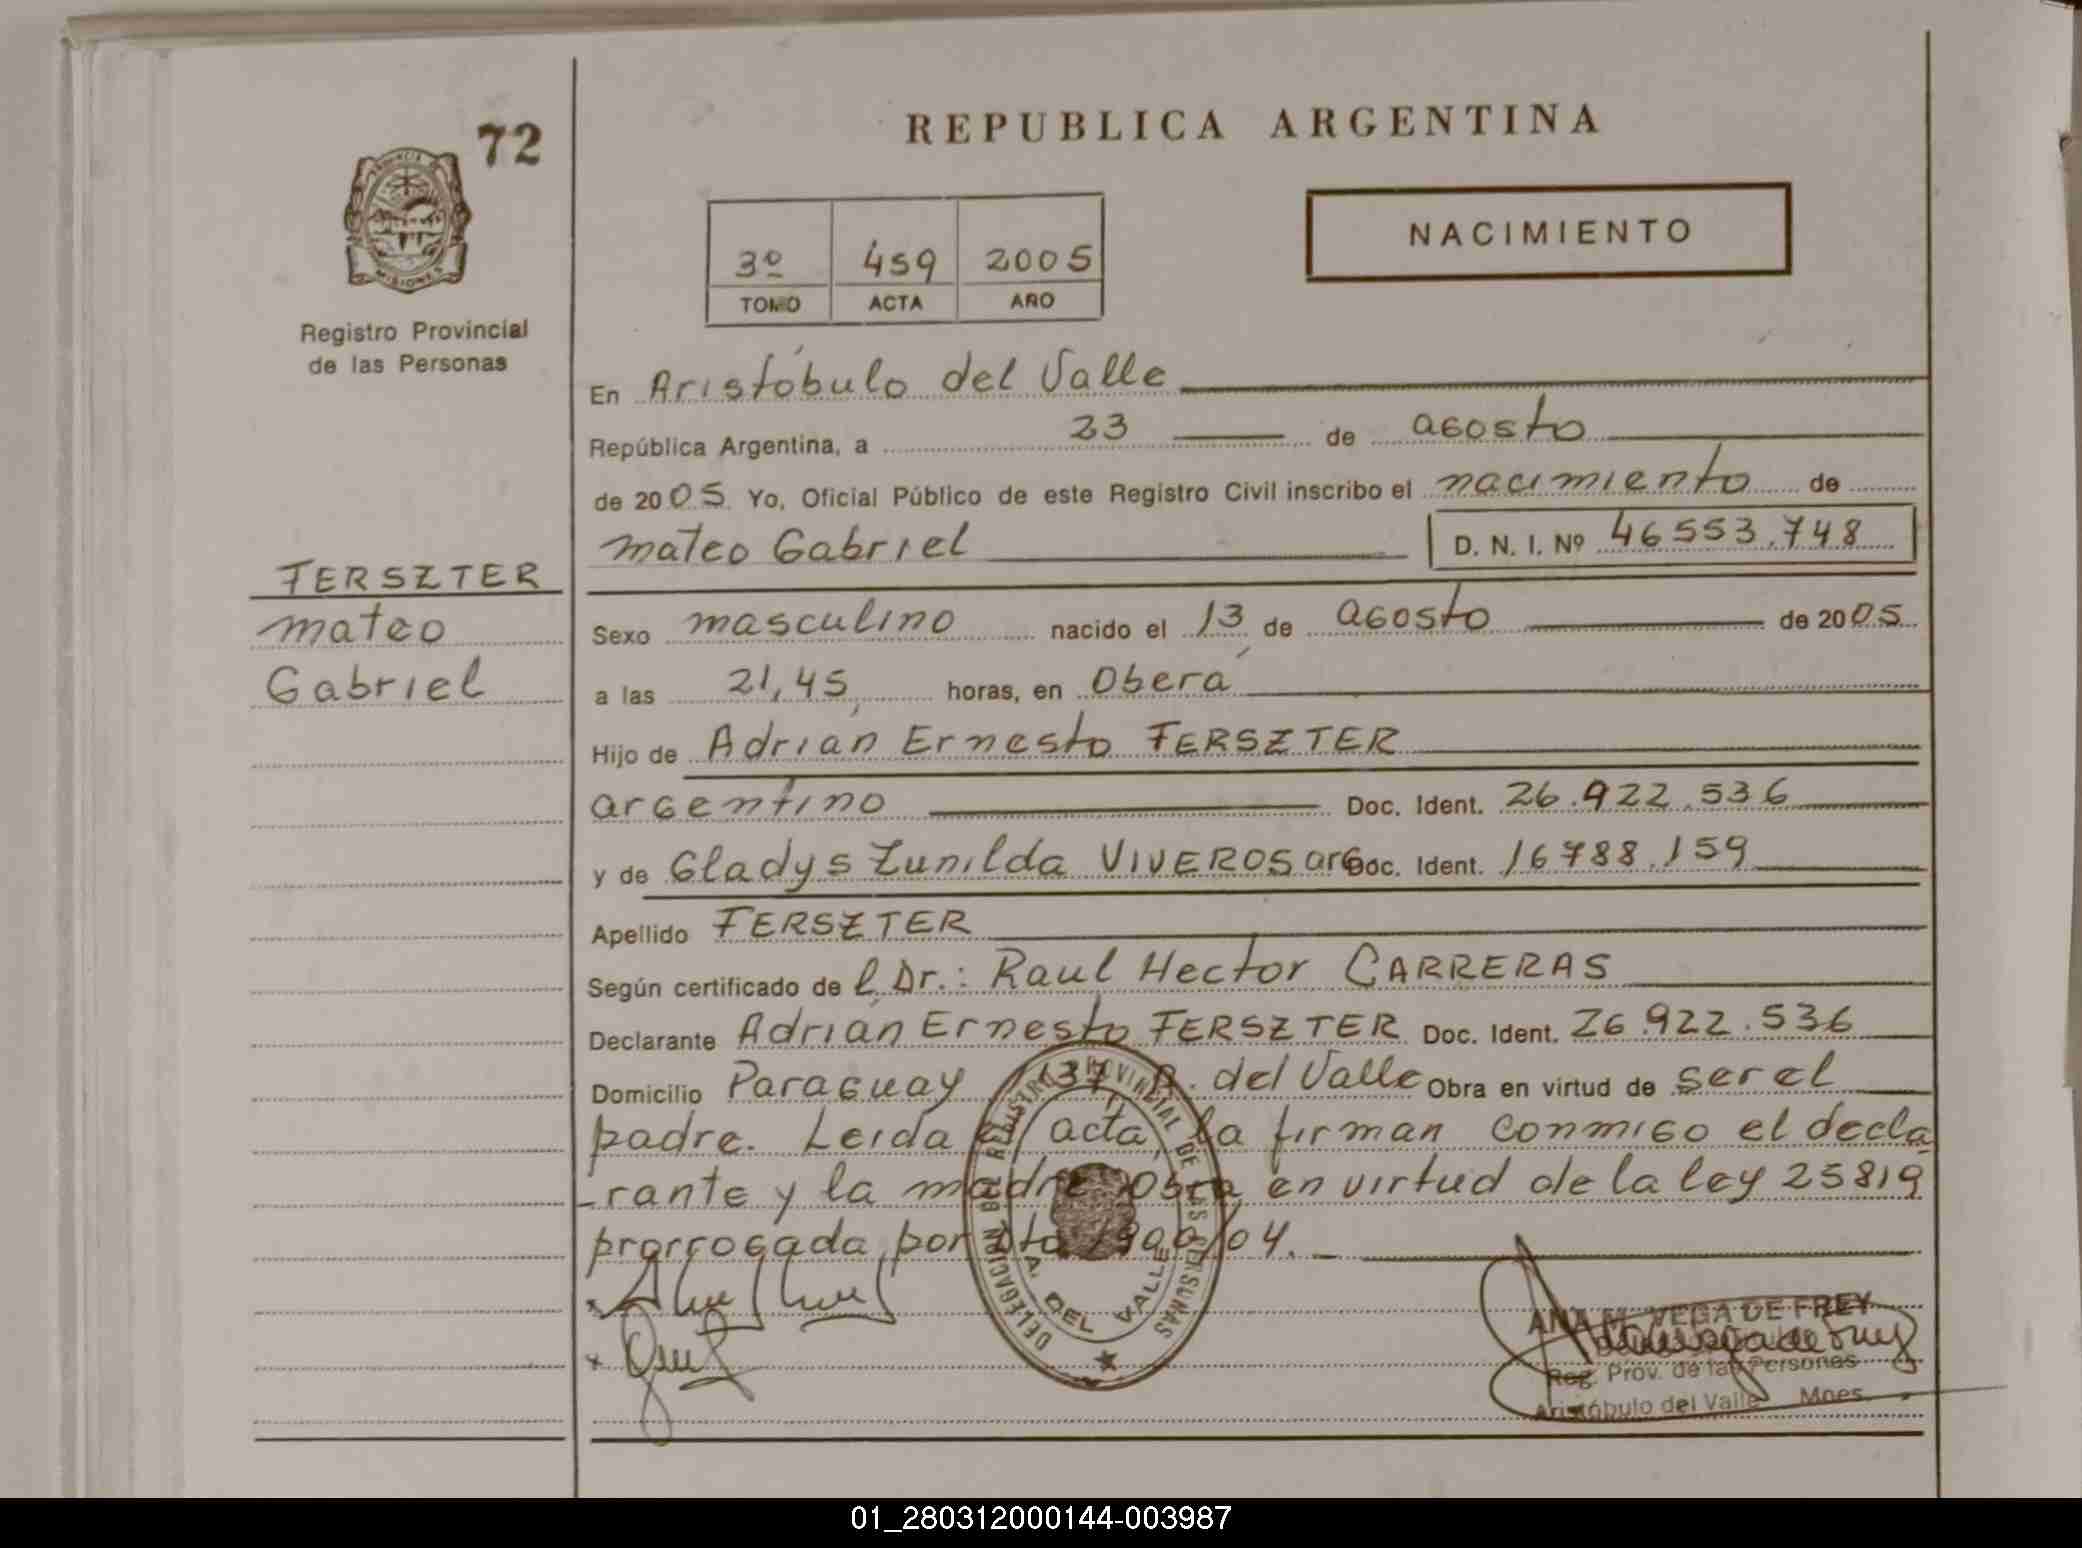 72
REPUBLICA ARGENTINA
PROVINCIA
MISIONES
NACIMIENTO
3º 459 2005
TOMO ACTA AÑO
Registro Provincial
de las Personas
En Aristóbulo del Valle
República Argentina, a 23 de agosto
de 2005 Yo, Oficial Público de este Registro Civil inscribo el nacimiento de
mateo Gabriel D. N. I. Nº 46553.748
FERSZTER
mateo
Gabriel
Sexo masculino nacido el 13 de agosto de 2005
a las 21,45 horas, en Oberá
Hijo de Adrián Ernesto FERSZTER
argentino Doc. Ident. 26.922.536
y de Gladys Zunilda VIVEROS arg Doc. Ident. 16788.159
Apellido FERSZTER
Según certificado de l Dr.: Raul Hector CARRERAS
Declarante Adrián Ernesto FERSZTER Doc. Ident. 26.922.536
Domicilio Paraguay 137, A. del Valle Obra en virtud de ser el
padre. Leida el acta, la firman conmigo el decla
-rante y la madre, obra en virtud de la ley 25819
prorrogada por dto 1900/04.
DELEGACION DEL REGISTRO PROVINCIAL DE LAS PERSONAS
A. DEL VALLE
ANA M. VEGA DE FREY
Reg. Prov. de las Personas
Aristóbulo del Valle Mnes.
01_280312000144-003987